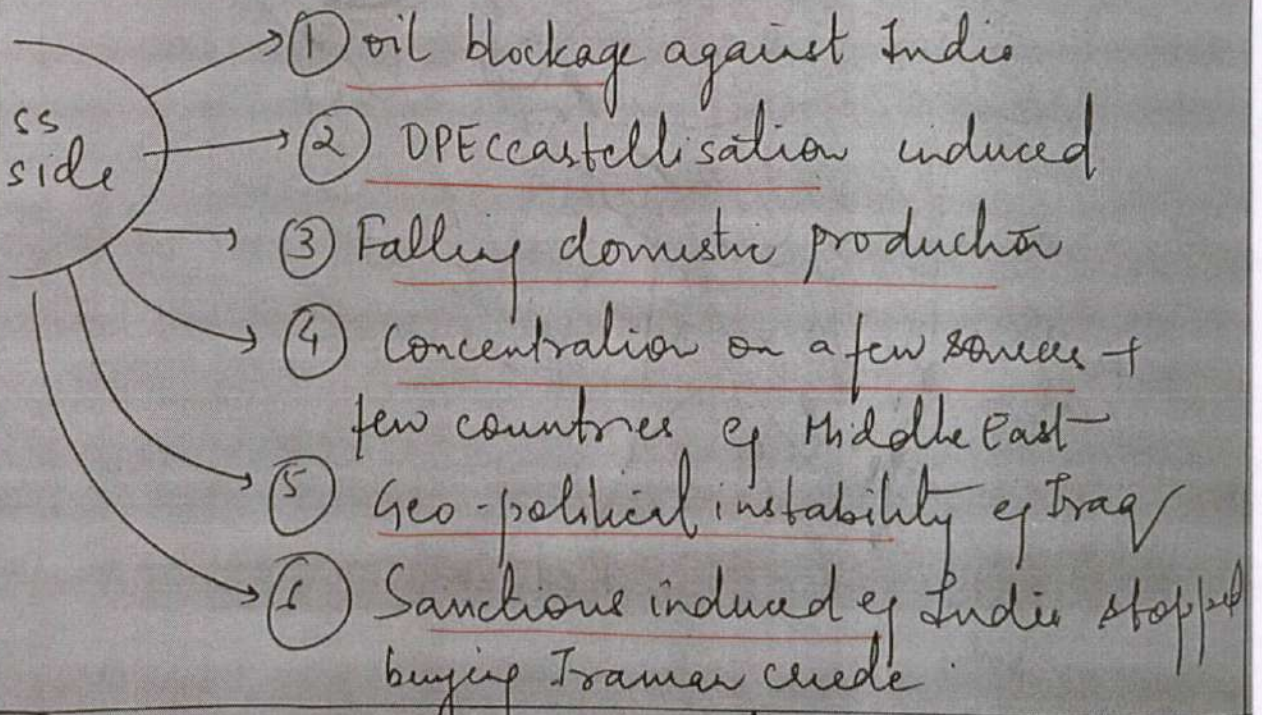 ss
side
① oil blockage against India
② OPECcastellisation induced
③ Falling domestic production
④ Concentration on a few sources +
few countries eg Middle East
⑤ Geo-political instability eg Iraq
⑥ Sanctions induced eg India stopped
buying Iranian crude.